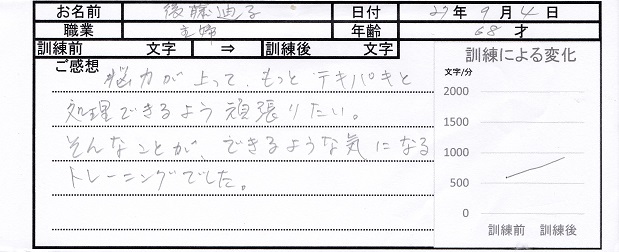 お名前 後藤迪子 日付 27年9月4日
職業 主婦 年齢 68才
訓練前 文字 ⇒ 訓練後 文字
ご感想
脳力が上って、もっとテキパキと
処理できるよう頑張りたい。
そんなことが、できるような気になる
トレーニングでした。
訓練による変化
文字/分
2000
1500
1000
500
0
訓練前 訓練後